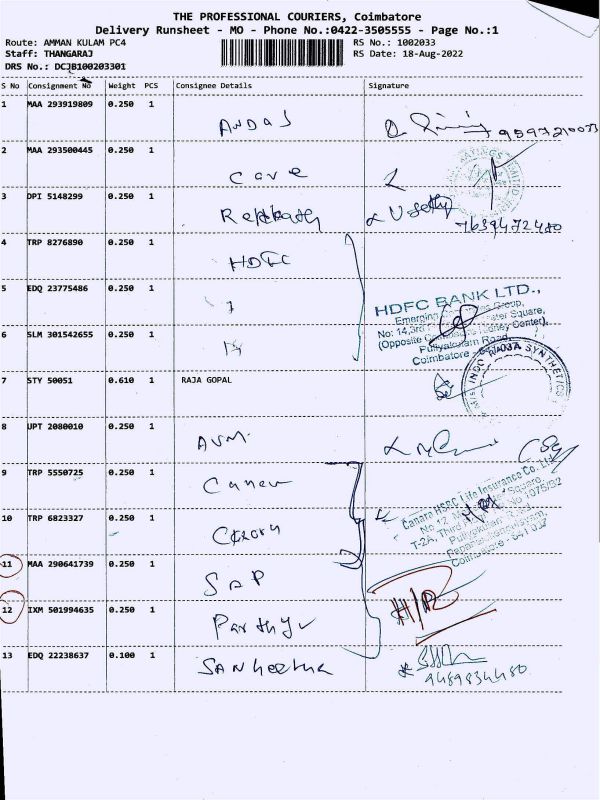 THE PROFESSIONAL COURIERS, Coimbatore
Delivery Runsheet - MO - Phone No.:0422-3505555 - Page No.:1
Route: AMMAN KULAM PC4 RS No.: 1002033
Staff: THANGARAJ RS Date: 18-Aug-2022
DRS No.: DCJB100203301
S No Consignment No Weight PCS Consignee Details Signature
1 MAA 293919809 0.250 1 ANDAS 9597210033
2 MAA 293500445 0.250 1 Care
3 DPI 5148299 0.250 1 7639472480
4 TRP 8276890 0.250 1 HDFC
5 EDQ 23775486 0.250 1
HDFC BANK LTD.,
Emerging Group,
No: 14,3rd Square,
(Opposite Sidney Center),
Puliyakulam Road,
Coimbatore
6 SLM 301542655 0.250 1
7 STY 50051 0.610 1 RAJA GOPAL
INDO RAJA SYNTHETICS
8 UPT 2080010 0.250 1 AVM
9 TRP 5550725 0.250 1
Canara HSBC Life Insurance Co. Ltd
No 12 Square,
T-2A, Third No 1075/92
Puliyakulam
Coimbatore - 641 037
10 TRP 6823327 0.250 1
11 MAA 290641739 0.250 1 SAP
12 IXM 501994635 0.250 1
13 EDQ 22238637 0.100 1 Sangeetha
9489834480